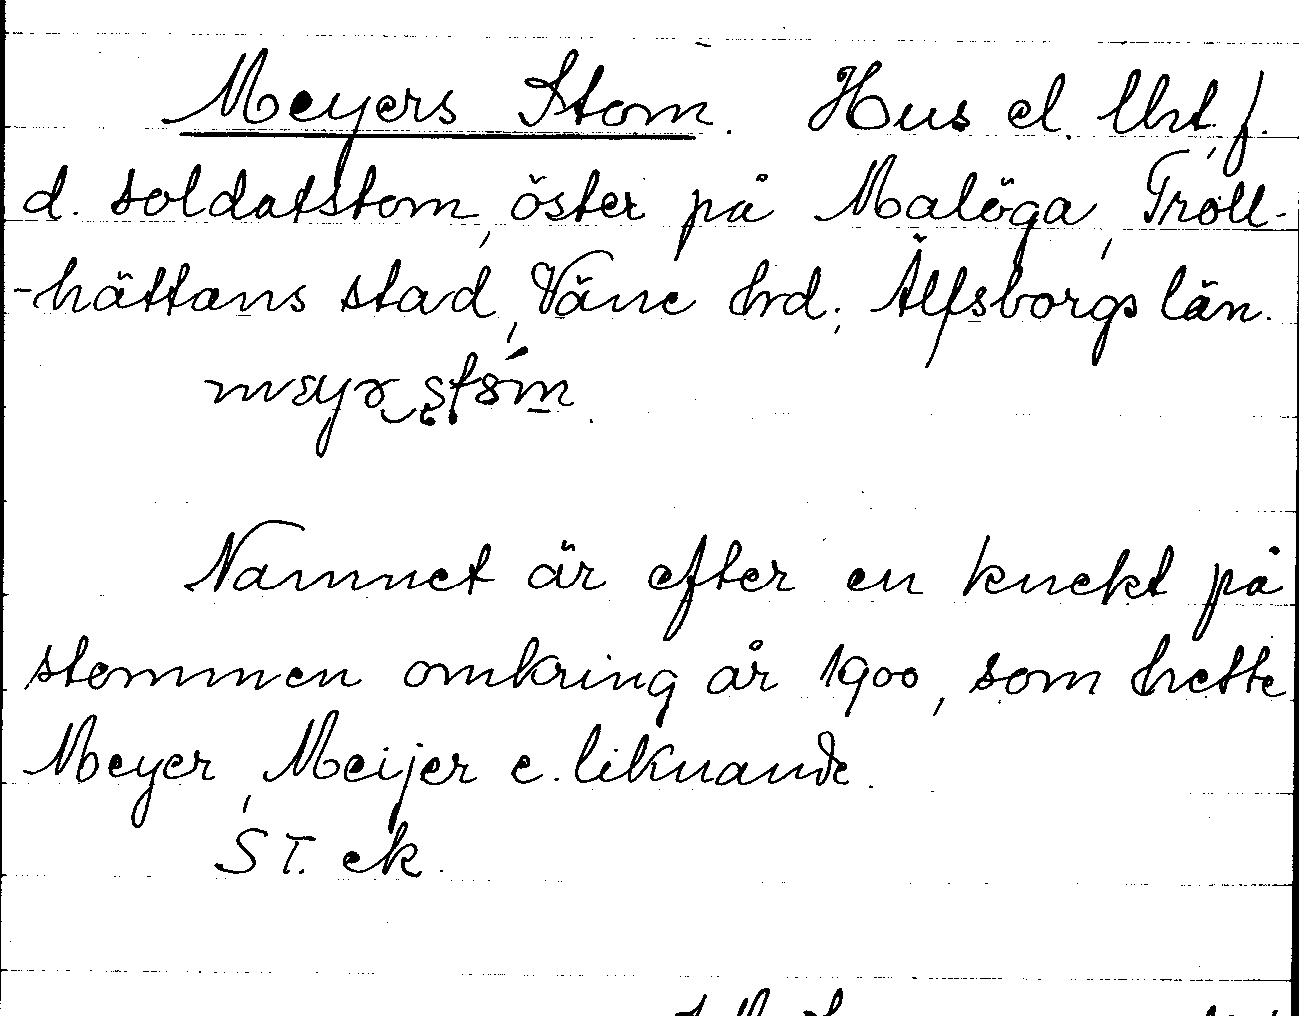 Meyers Stom. Hus el. lht, f.
d. soldatstom, öster på Malöga, Troll-
-hättans stad, Väne hrd; Älfsborgs län.
Namnet är efter en knekt på
stommen omkring år 1900, som hette
Meyer, Meijer e. liknande.
ST. ek.